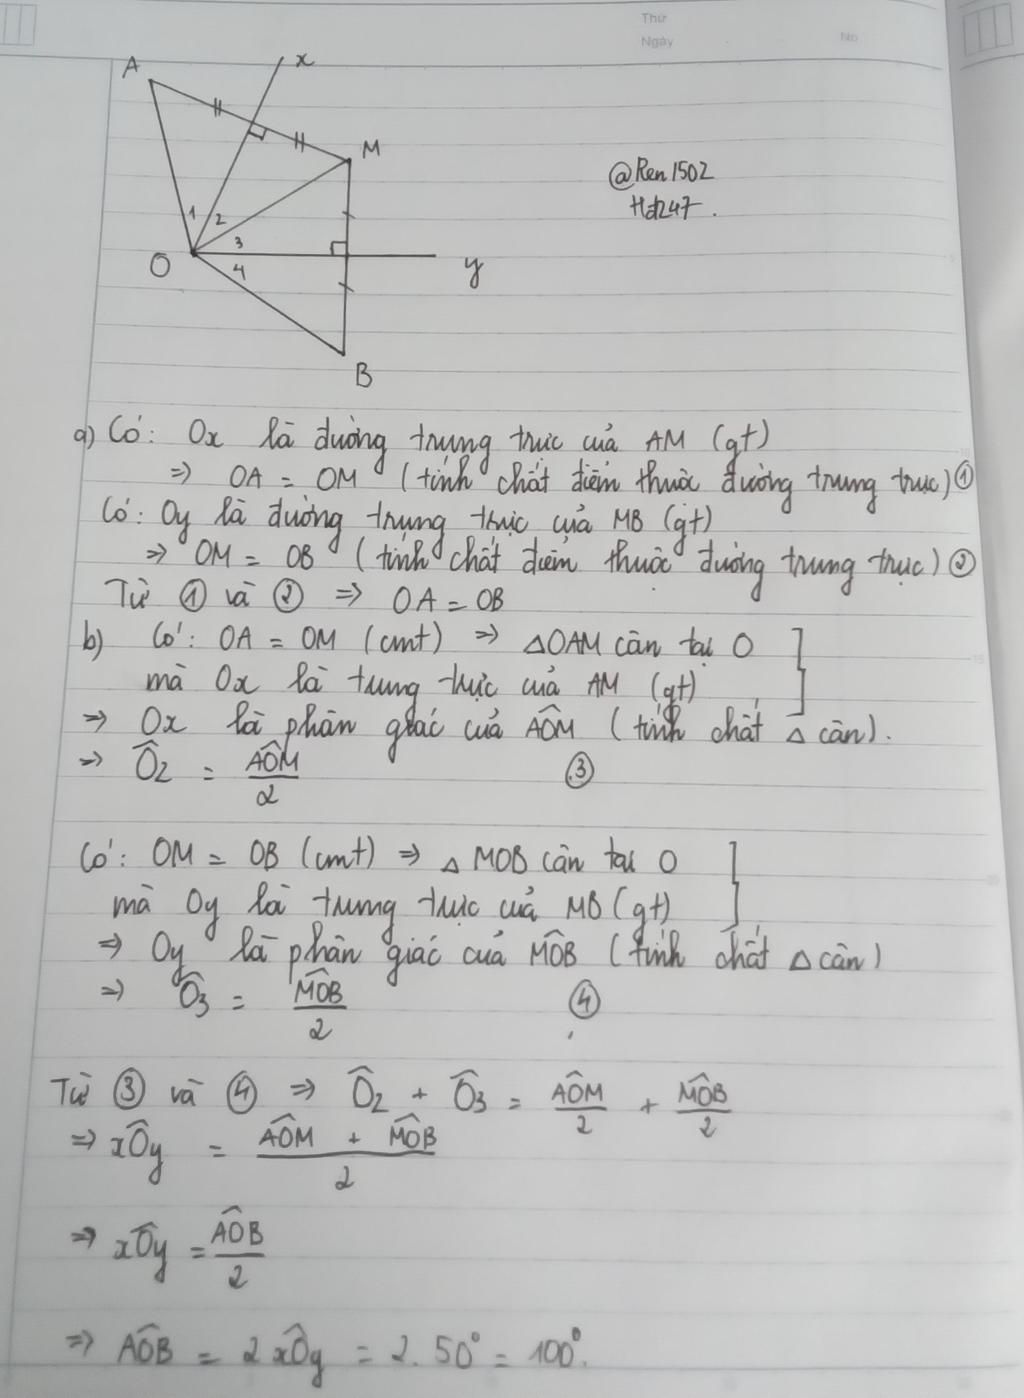 Thứ
Ngày
No
A
x
M
@Ren1502
Hd247.
1 2
3
O 4
y
B
a) Có: Ox là đường trung trực của AM (gt)
=> OA = OM (tính chất điểm thuộc đường trung trực) ①
Có: Oy là đường trung trực của MB (gt)
=> OM = OB (tính chất điểm thuộc đường trung trực) ②
Từ ① và ② => OA = OB
b) Có: OA = OM (cmt) => △OAM cân tại O
mà Ox là trung trực của AM (gt)
=> Ox là phân giác của AÔM (tính chất △ cân).
=> Ô2 = AÔM/2 ③
Có: OM = OB (cmt) => △MOB cân tại O
mà Oy là trung trực của MB (gt)
=> Oy là phân giác của MÔB (tính chất △ cân)
=> Ô3 = MÔB/2 ④
Từ ③ và ④ => Ô2 + Ô3 = AÔM/2 + MÔB/2
=> xÔy = (AÔM + MÔB)/2
=> xÔy = AÔB/2
=> AÔB = 2 xÔy = 2. 50° = 100°.